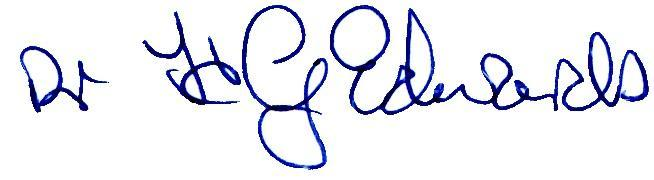 Dr H G Edwards